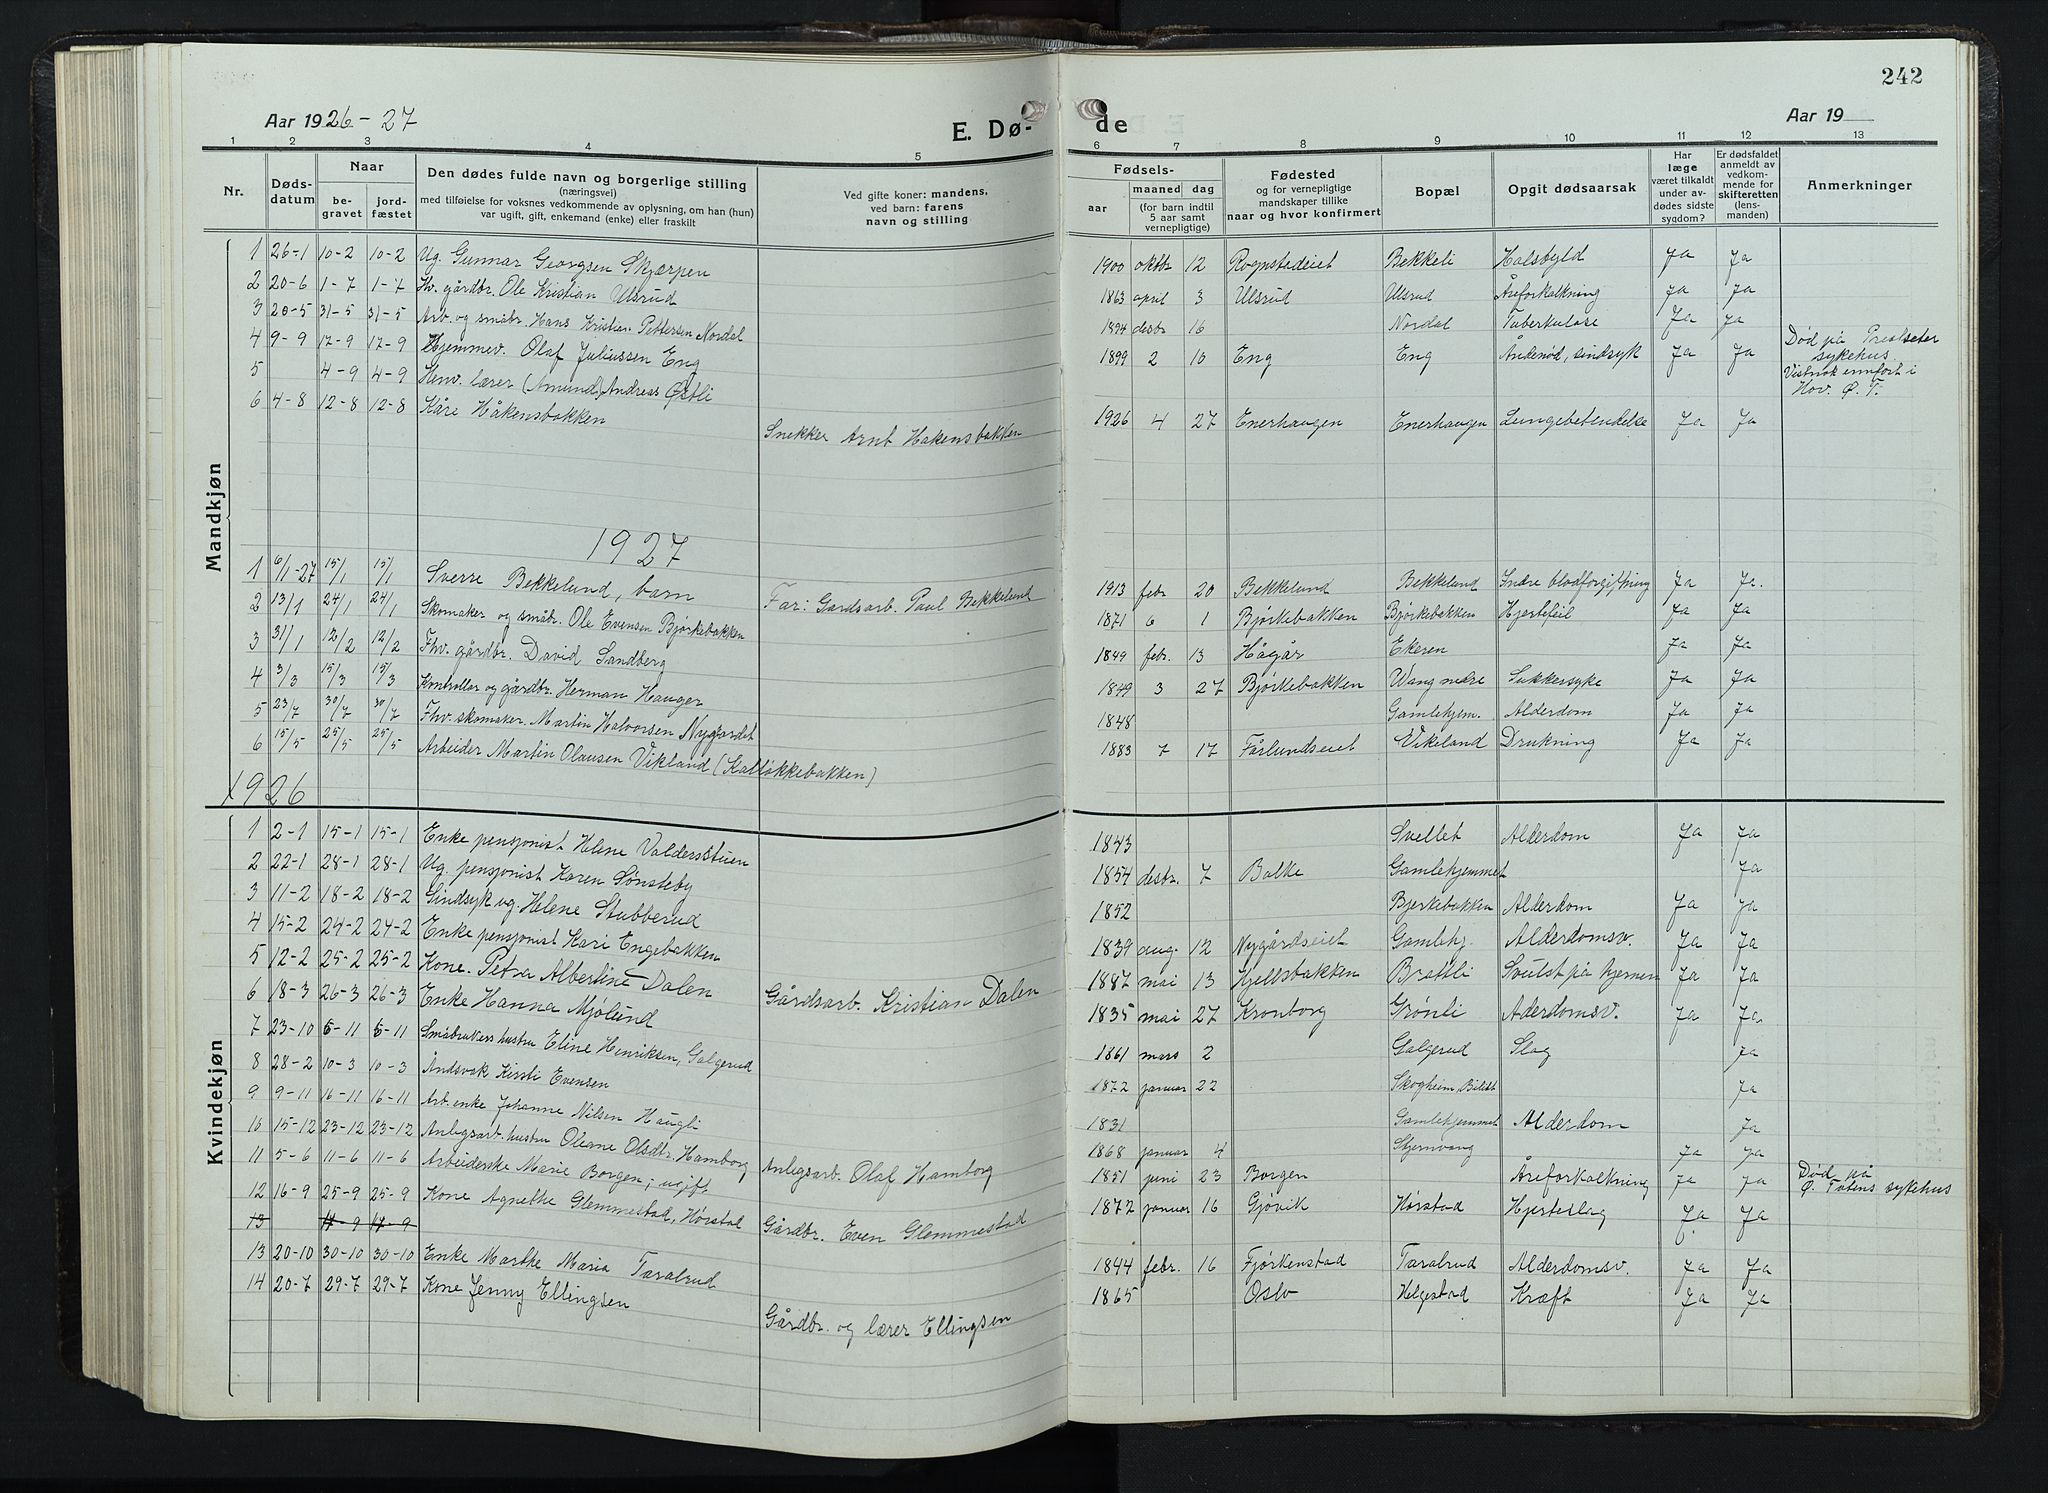 242
Aar 1926-27
E. Dø-
de
Aar 19
1 2 3 4 5 6 7 8 9 10 11 12 13
Nr.
Døds-
datum
Naar
be-
gravet
jord-
fæstet
Den dødes fulde navn og borgerlige stilling
(næringsvei)
med tilføielse for voksnes vedkommende av oplysning, om han (hun)
var ugift, gift, enkemand (enke) eller fraskilt
Ved gifte koner: mandens,
ved barn: farens
navn og stilling
Fødsels-
aar
maaned
dag
(for barn indtil
5 aar samt
vernepligtige)
Fødested
og for vernepligtige
mandskaper tillike
naar og hvor konfirmert
Bopæl
Opgit dødsaarsak
Har
læge
været tilkaldt
under av-
dødes sidste
sygdom?
Er dødsfaldet
anmeldt av
vedkom-
mende for
skifteretten
(lens-
manden)
Anmerkninger
Mandkjøn
1 26-1 10-2 10-2 Ug. Gunnar Georgsen Skjærpen 1900 oktbr 12 Rognstadeiet Bekkeli Halsbyld Ja Ja
2 20-6 1-7 1-7 Fhv. gårdbr. Ole Kristian Ulsrud 1863 april 3 Ulsrud Ulsrud Åreforkalkning Ja Ja
3 20-5 31-5 31-5 Arb. og småbr. Hans Kristian Pettersen Nordal 1894 desbr 16 Nordal Tuberkulose Ja Ja
4 9-9 17-9 17-9 Hjemmev. Olaf Juliussen Eng 1899 2 10 Eng Eng Åndenød, sindsyk Ja Ja Død på Presteseter
sykehus.
5 4-9 4-9 Henv. lærer (Amund) Andreas Østli Vistnok innført i
Hov. Ø. T.
6 4-8 12-8 12-8 Kåre Håkensbakken Snekker Arnt Hakensbakken 1926 4 27 Enerhaugen Enerhaugen Lungebetendelse Ja Ja
1927
1 6/1-27 15/1 15/1 Sverre Bekkelund, barn Far: Gardsarb. Paul Bekkelund 1913 febr 20 Bekkelund Bekkelund Indre blodforgiftning Ja Ja.
2 13/1 24/1 24/1 Skomaker og småbr. Ole Evensen Bjørkebakken 1871 6 1 Bjørkebakken Bjørkebakken Hjertefeil Ja Ja
3 31/1 12/2 12/2 Fhv. gårdbr. David Sandberg 1849 febr. 13 Hågår Ekeren Ja Ja
4 3/3 15/3 15/3 Kontrollør og gårdbr. Herman Hauger 1849 3 27 Bjørkebakken Wang nedre Sukkersyke Ja Ja
5 23/7 30/7 30/7 Fhv. skomaker Martin Halvorsen Nygardet 1848 Gamlehjem. Alderdom Ja Ja
6 15/5 25/5 25/5 Arbeider Martin Olausen Vikland (Kalløkkebakken) 1883 7 17 Fårlundseiet Vikeland Drukning Ja Ja
1926
Kvindekjøn
1 2-1 15-1 15-1 Enke pensjonist Helene Valdersstuen 1843 Svellet Alderdom Ja Ja
2 22-1 28-1 28-1 Ug. pensjonist Karen Sønsteby 1854 desbr. 7 Balke Gamlehjemmet Ja
3 11-2 18-2 18-2 Sindsyk ug. Helene Stubberud 1852 Bjerkebakken Alderdom Ja Ja
4 15-2 24-2 24-2 Enke pensjonist Kari Engebakken 1839 aug. 12 Nygårdseiet Gamlehj. Alderdomsv. Ja Ja
5 12-2 25-2 25-2 Kone. Petra Albertine Dalen Gårdsarb. Kristian Dalen 1887 mai 13 Kjellsbakken Brattli Svulst på hjernen Ja Ja
6 18-3 26-3 26-3 Enke Hanna Mjølund 1835 mai 27 Kronborg Grønli Aderdomsv. Ja Ja.
7 23-10 5-11 5-11 Småbrukers hustru Eline Henriksen, Galgerud 1861 mars 2 Galgerud Slag Ja
8 28-2 10-3 10-3 Åndsvak Kirsti Evensen 1872 januar 22 Skogheim, Bilitt Ja
9 9-11 16-11 16-11 Arb. enke Johanne Nilsen Haugli 1831 Gamlehjemmet Alderdom Ja
10 15-12 23-12 23-12 Anlegsarb. hustru Oleane Olsdtr. Hamborg Anlegsarb. Olaf Hamborg 1868 januar 4 Stjernvang Ja Ja
11 5-6 11-6 11-6 Arbeiderske Marie Borgen, ugift 1851 juni 23 Borgen Åreforkalkning Ja Ja Død på
Ø. Totens sykehus
12 16-9 25-9 25-9 Kone Agnethe Glemmestad, Hørstad Gårdbr. Even Glemmestad 1872 januar 16 Gjøvik Hørstad Hjerteslag Ja Ja
13 11-9 11-9
13 20-10 30-10 30-10 Enke Marthe Maria Taralrud 1844 febr. 16 Fjørkenstad Taralrud Alderdomsv. Ja Ja
14 20-7 29-7 29-7 Kone Jenny Ellingsen Gårdbr. og lærer Ellingsen 1865 Oslo Helgestad Kræft Ja Ja